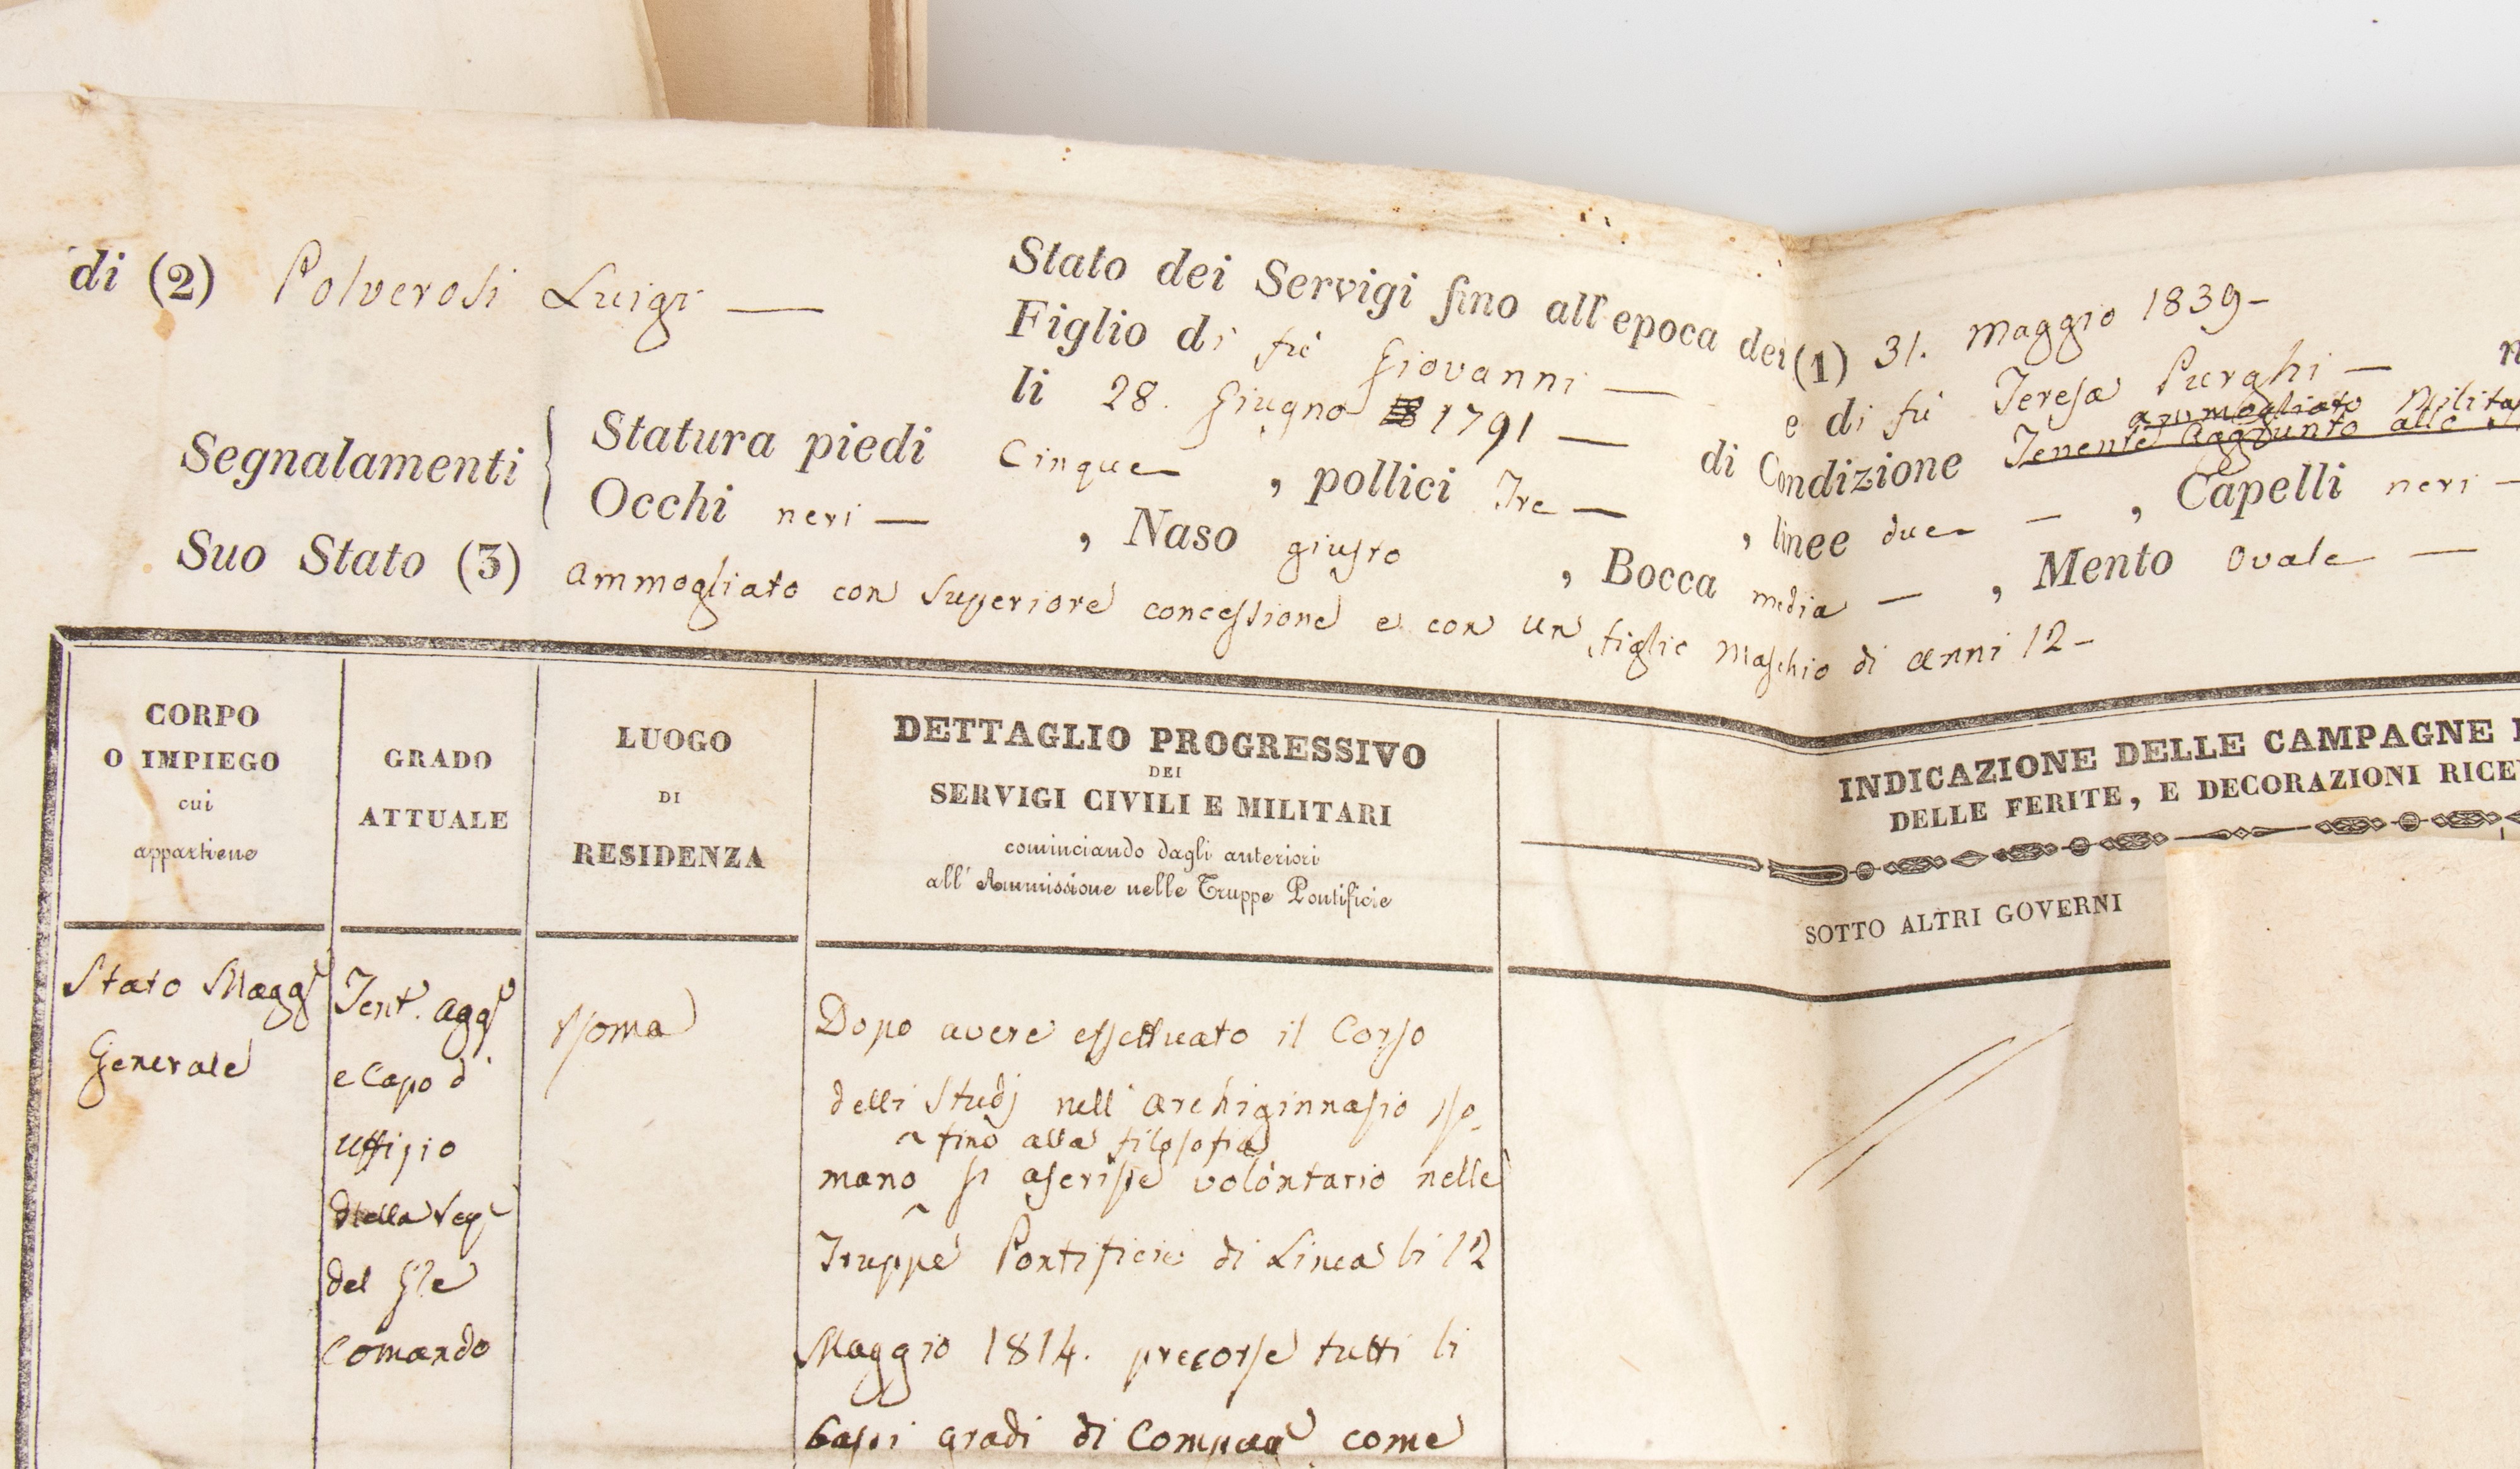 Stato dei Servigi fino all'epoca dei (1) 31. Maggio 1839-
di (2) Polverosi Luigi —
Figlio di fù Giovanni — e di fù Teresa Purghi —
li 28. Giugno 1791 — di Condizione
ammogliato
Tenente Aggiunto allo
Segnalamenti
Statura piedi Cinque , pollici Tre — , linee due — , Capelli neri —
Occhi neri — , Naso giusto , Bocca media — , Mento Ovale —
Suo Stato (3) Ammogliato con Superiore concessione e con un figlio Maschio di anni 12-
CORPO
O IMPIEGO
cui
appartiene
GRADO
ATTUALE
LUOGO
DI
RESIDENZA
DETTAGLIO PROGRESSIVO
DEI
SERVIGI CIVILI E MILITARI
cominciando dagli anteriori
all'Ammissione nelle Truppe Pontificie
INDICAZIONE DELLE CAMPAGNE
DELLE FERITE, E DECORAZIONI
SOTTO ALTRI GOVERNI
Stato Magge
Generale
Tent. Aggo
e Capo d'
Uffizio
della Sega
del Gle
Comando
Roma
Dopo avere effettuato il Corso
delli Studj nell'Archiginnasio Ro-
fino alla filosofia
mano si ascrisse volontario nelle
Truppe Pontificie di Linea li 12
Maggio 1814. precorse tutti li
bassi gradi di Compaa come